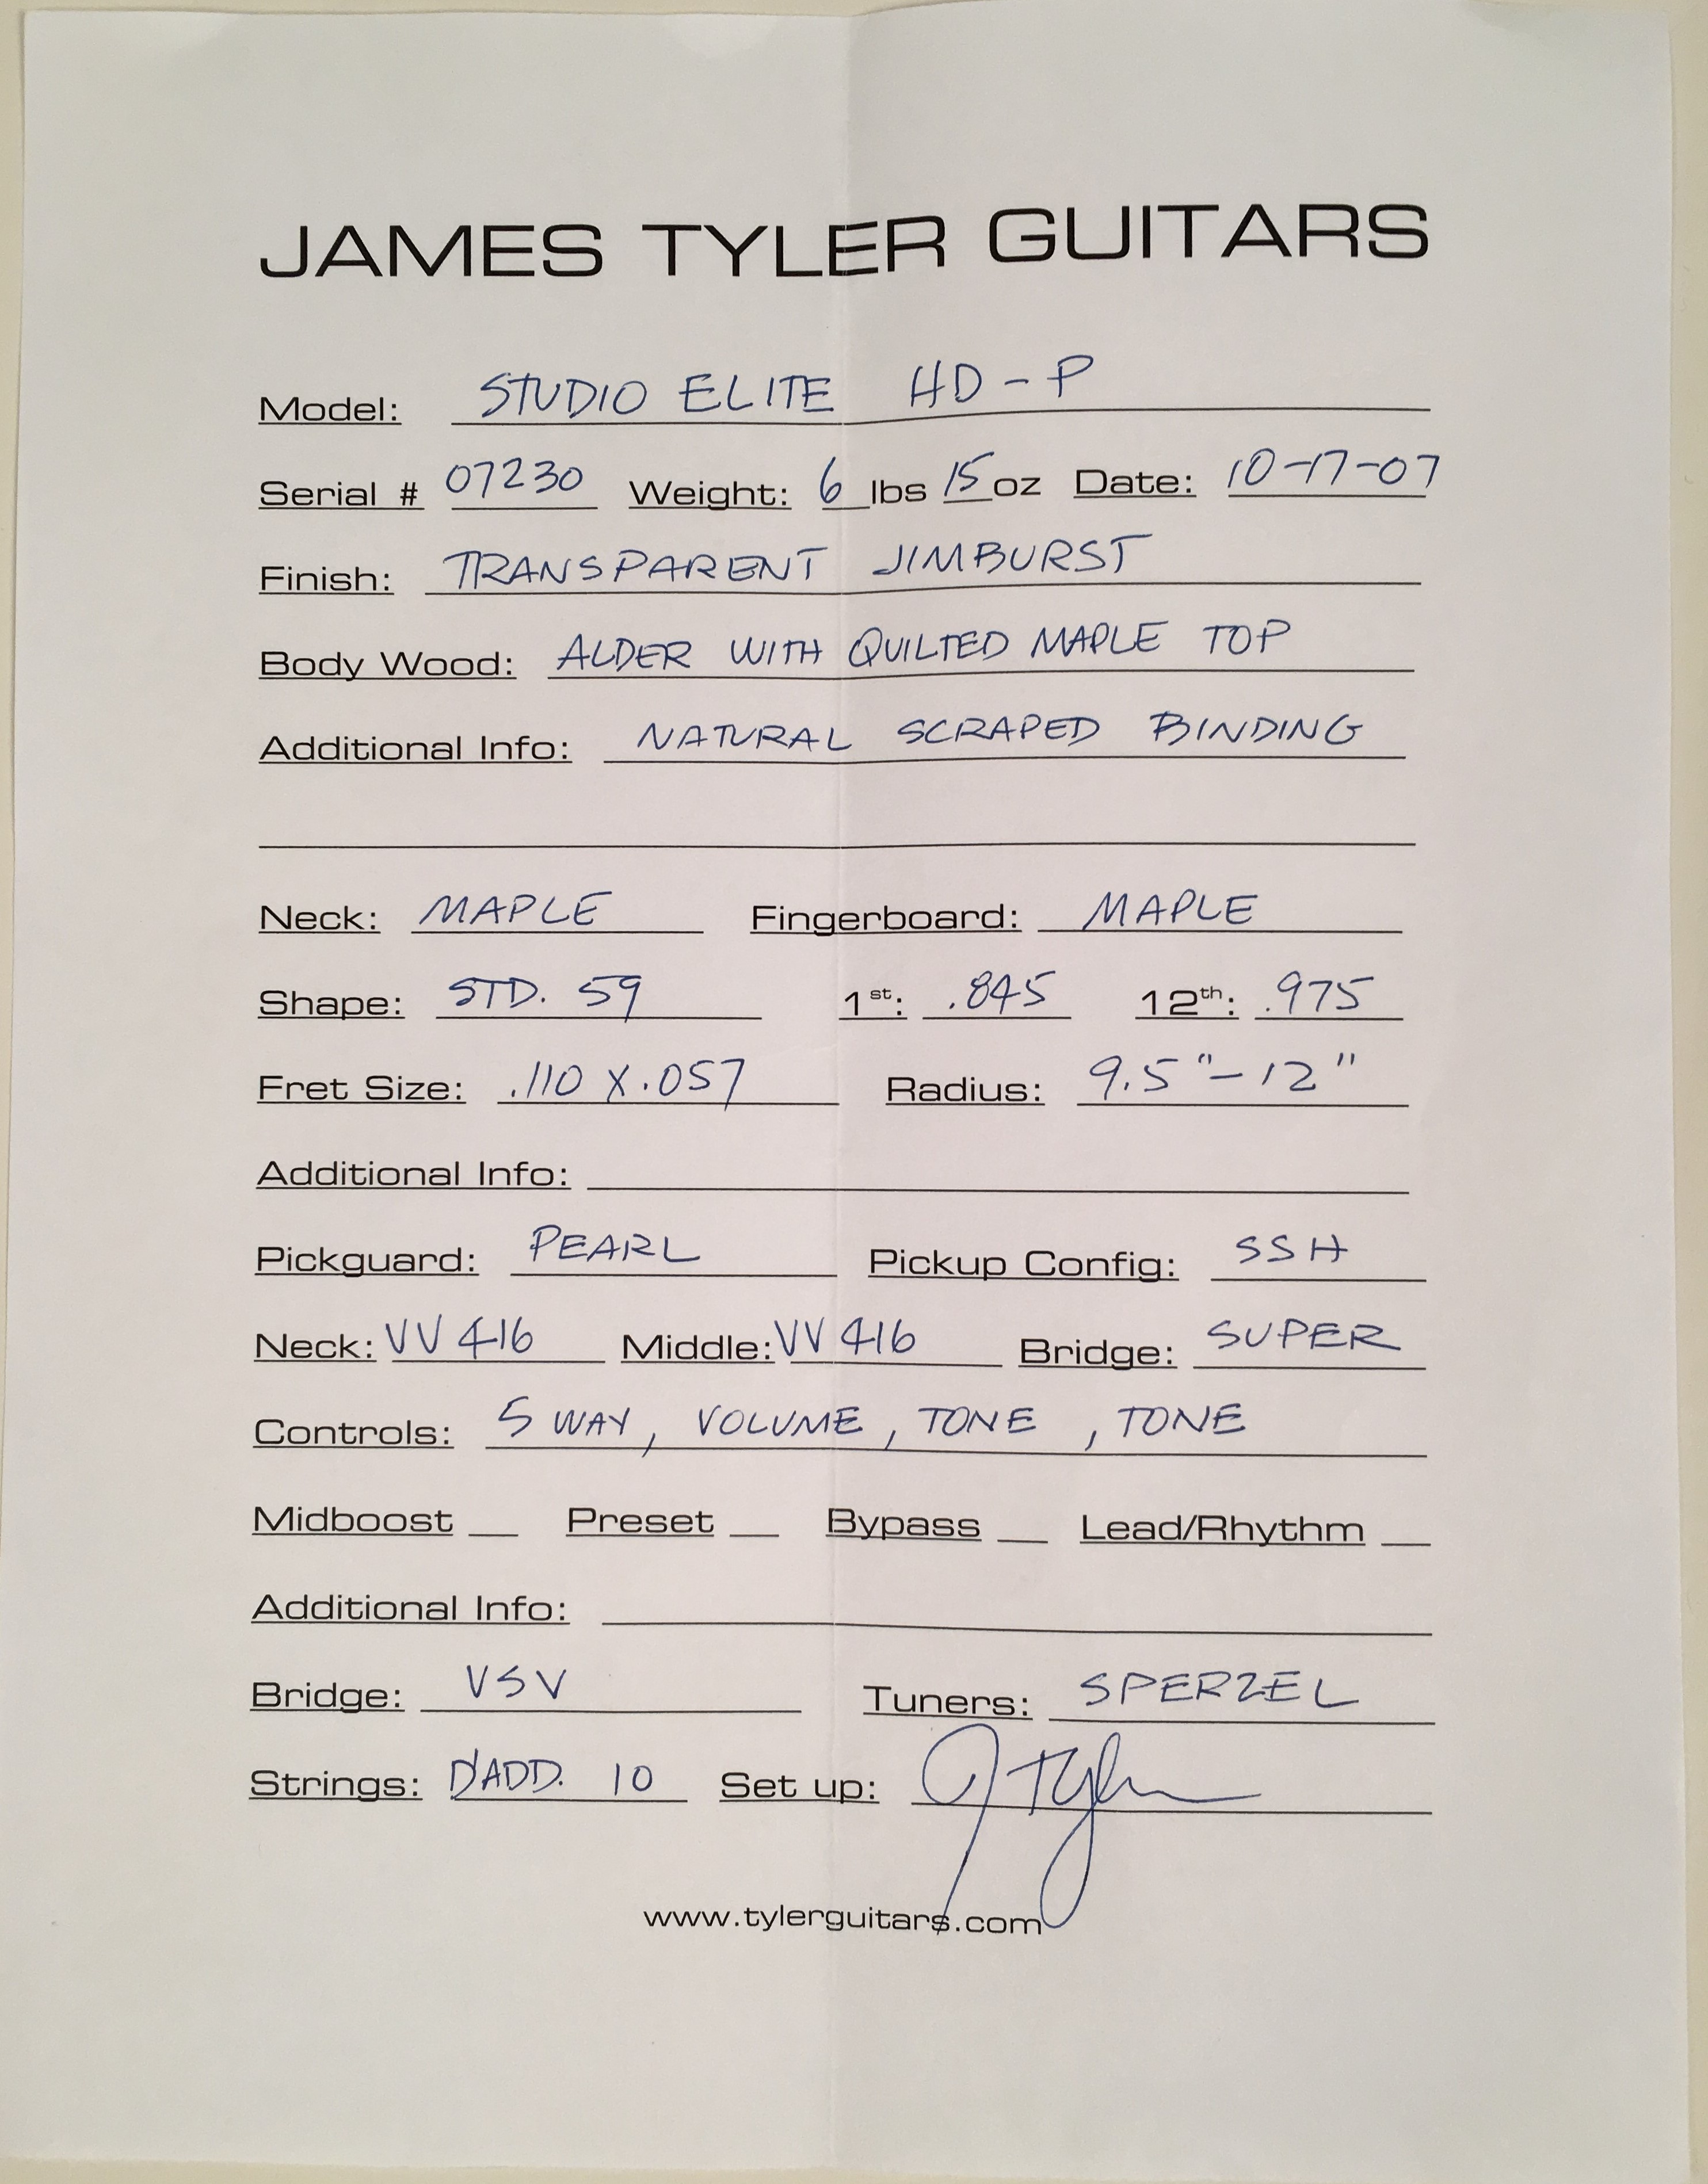 JAMES TYLER GUITARS
Model: STUDIO ELITE HD-P
Serial # 07230 Weight: 6 lbs 15 oz Date: 10-17-07
Finish: TRANSPARENT JIMBURST
Body Wood: ALDER WITH QUILTED MAPLE TOP
Additional Info: NATURAL SCRAPED BINDING
Neck: MAPLE Fingerboard: MAPLE
Shape: STD. 59 1st: .845 12th: .975
Fret Size: .110 X .057 Radius: 9.5"-12"
Additional Info:
Pickguard: PEARL Pickup Config: SSH
Neck: VV 416 Middle: VV 416 Bridge: SUPER
Controls: 5 WAY, VOLUME, TONE, TONE
Midboost Preset Bypass Lead/Rhythm
Additional Info:
Bridge: VSV Tuners: SPERZEL
Strings: D'ADD. 10 Set up: J Tyler
www.tylerguitars.com